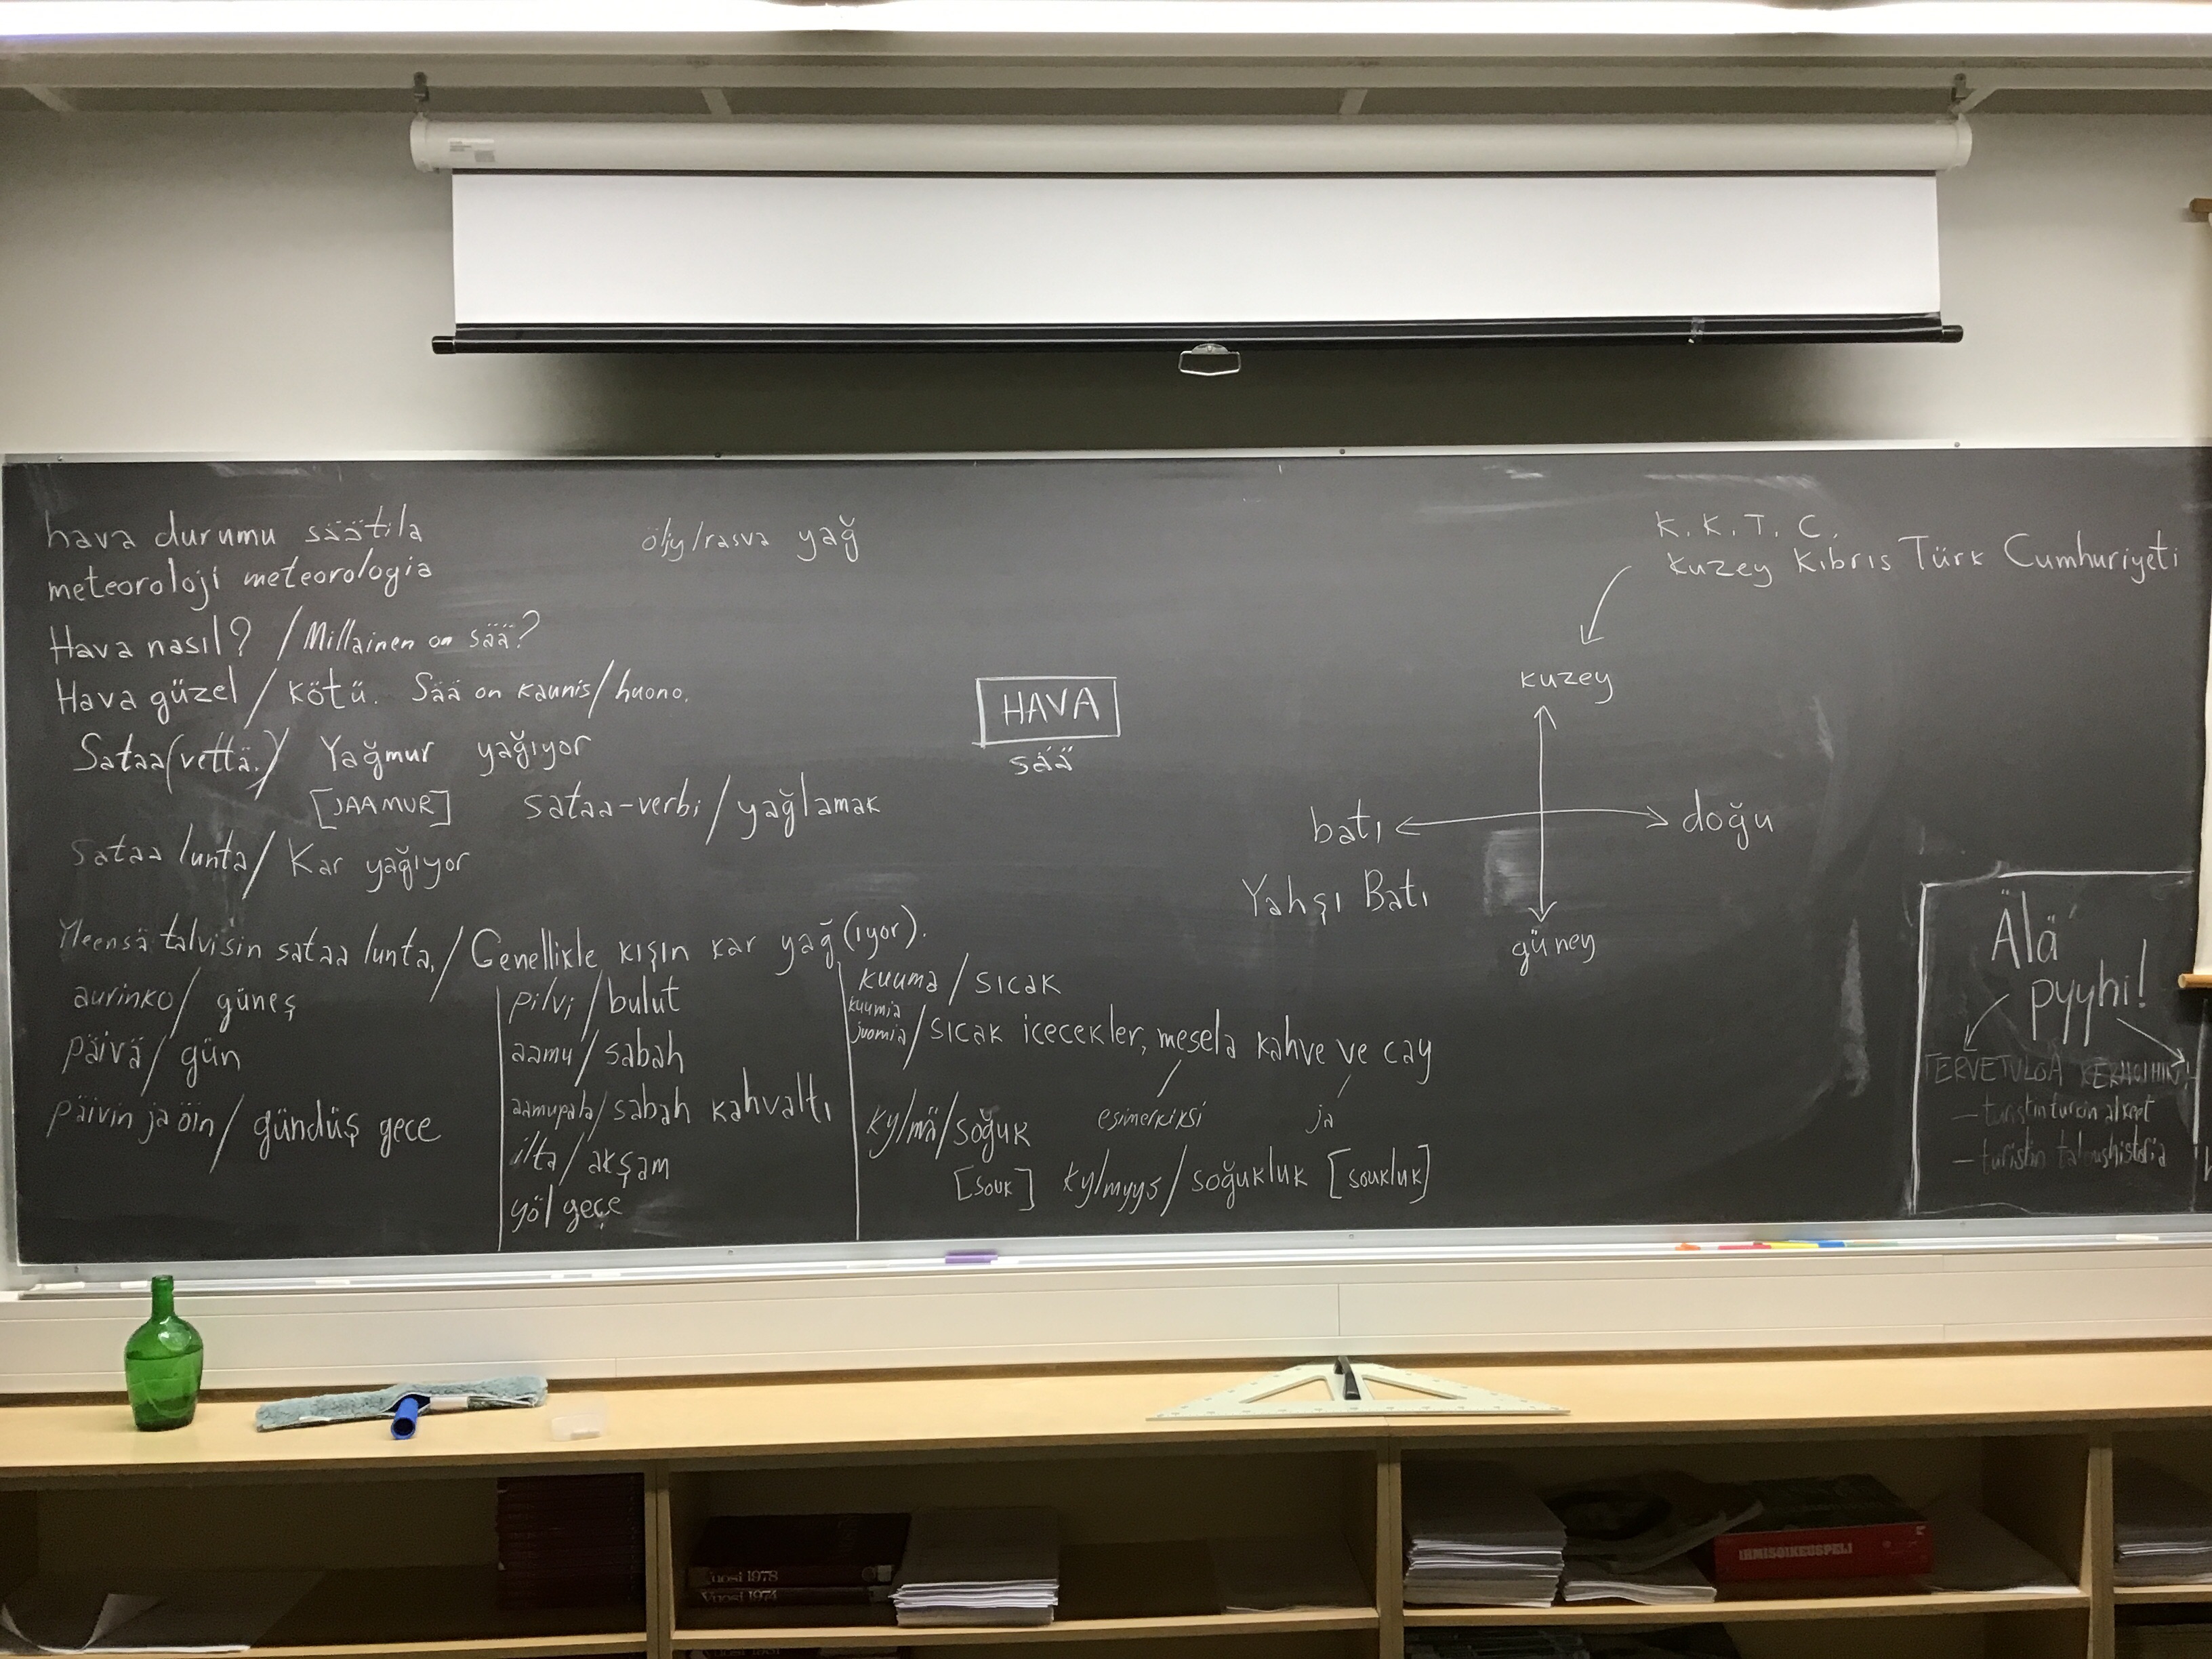 hava durumu säätila
meteoroloji meteorologia
Hava nasıl? / Millainen on sää?
Hava güzel / kötü. Sää on kaunis / huono.
Sataa (vettä.) / Yağmur yağıyor
[JAAMUR] sataa-verbi / yağlamak
sataa lunta / Kar yağıyor
Yleensä talvisin sataa lunta. / Genellikle kışın kar yağ(ıyor).
aurinko / güneş
päivä / gün
päivin ja öin / gündüş gece
pilvi / bulut
aamu / sabah
aamupala / sabah kahvaltı
ilta / akşam
yö / geçe
kuuma / sıcak
kuumia
juomia / sıcak icecekler, mesela kahve ve cay
esimerkiksi ja
kylmä / soğuk
[souk] kylmyys / soğukluk [soukluk]
öljy/rasva yağ
HAVA
sää
K. K. T. C.
Kuzey Kıbrıs Türk Cumhuriyeti
kuzey
batı doğu
Yahşı Batı
güney
Älä
pyyhi!
TERVETULOA
- turistin turcin alkeet
- turistin taloushistoria
Vuosi 1978
Vuosi 1974
IHMISOIKEUSPELI